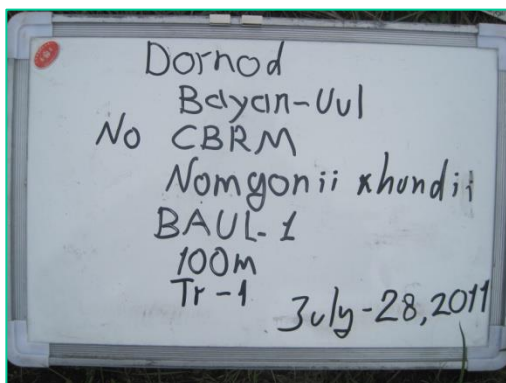 Dornod
Bayan-Uul
No CBRM
Nomgonii xhundii
BAUL-1
100m
Tr-1
July-28, 2011